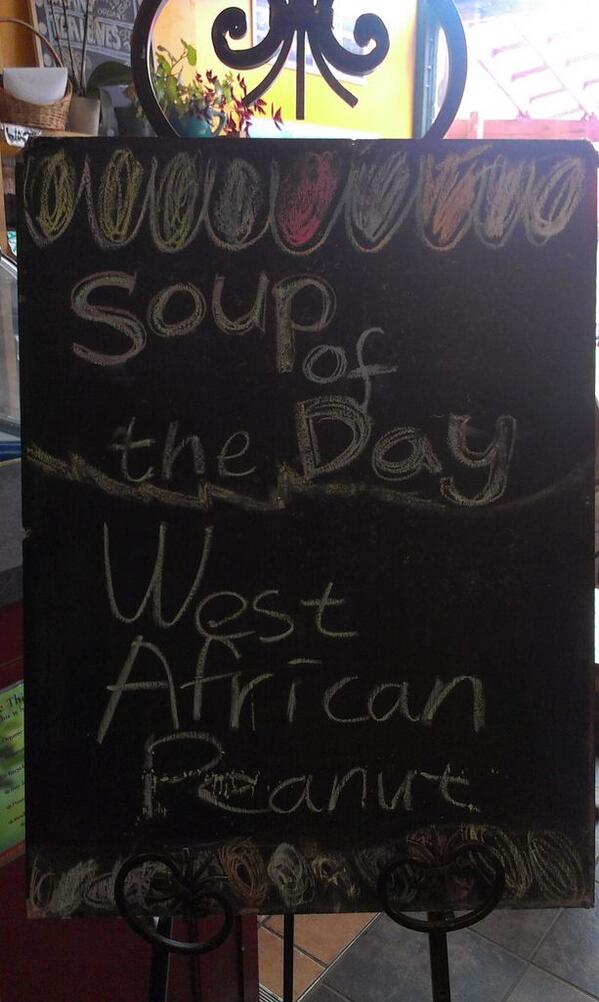 Soup
of
the Day
West
African
Peanut